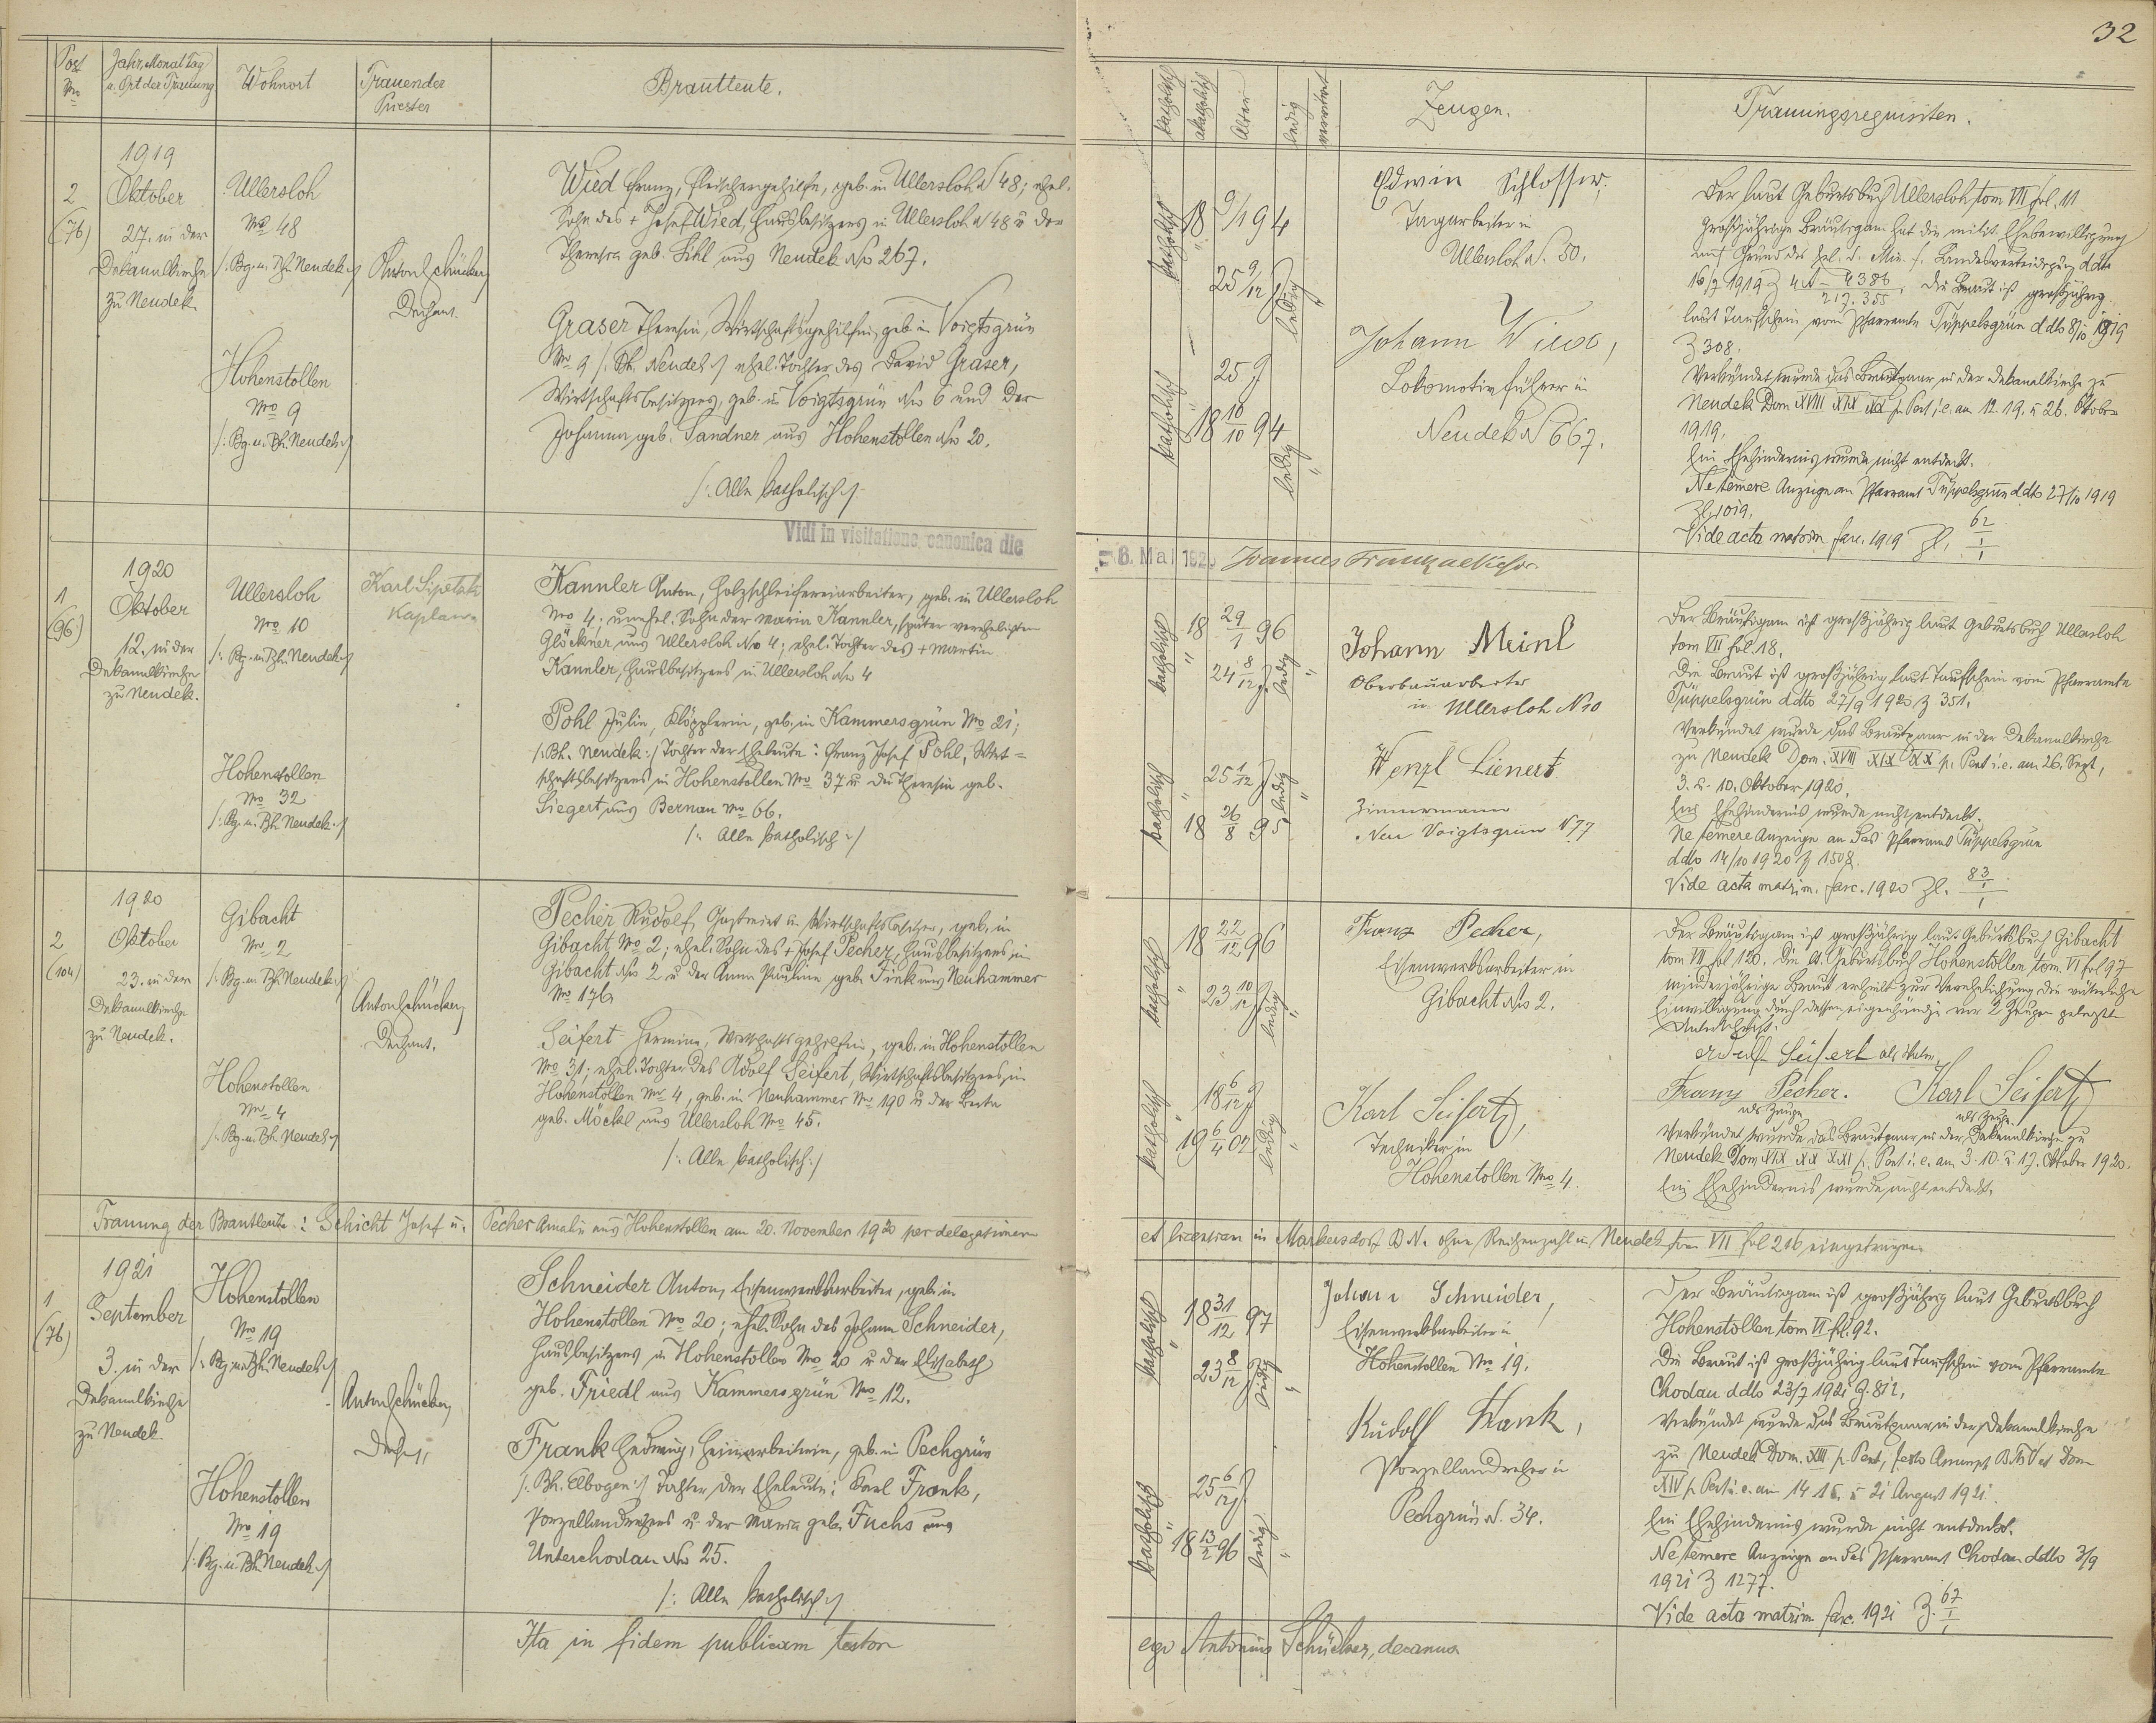 32
Post No
Jahr, Monat Tag u. Ort der Trauung
Wohnort
Trauender Priester
Brautleute.
katholisch
akatholisch
Alter
ledig
verwitwet
Zeugen.
Trauungsrequisiten.
1919
2
(76)
Oktober
27. in der
Dekanalkirche
zu Neudek.
Ullersloh
No 48
/: Bg. u. Bh. Neudek :/
Hohenstollen
No 9
/: Bg. u. Bh. Neudek :/
Anton Schücker,
Dechant.
Wied Franz, Fleischergehilfe, geb. in Ullersloh N 48; ehel.
Sohn des + Josef Wied, Hausbesitzers in Ullersloh N 48 u der
Theresia geb. Sihl aus Neudek No 267.
Graser Theresia, Wirtschaftsgehilfin, geb in Voigtsgrün
No 9 /: Bh. Neudek :/ ehel. Tochter des David Graser,
Wirtschaftsbesitzers, geb. in Voigtsgrün No 6 und der
Johanna geb. Sandner aus Hohenstollen No 20.
/: Alle katholisch :/
katholisch
18 9/1 94
25 9/12 J
ledig
katholisch
25 J
18 16/10 94
ledig
Edwin Schlosser,
Tagarbeiter in
Ullersloh N. 50.
Johann Wied,
Lokomotivführer in
Neudek N 667.
Der laut Geburtsbuch Ullersloh tom VII fol. 11
großjährige Bräutigam hat die milit. Ehebewilligung
auf Grund des Erl. d. Min. f. Landesverteidigung ddto
16/7 1919 Z 4A - 4386 / 217.355; die Braut ist großjährig
laut Taufschein vom Pfarramte Tüppelsgrün ddto 8/10 1919
Z 308.
Verkündet wurde das Brautpaar in der Dekanalkirche zu
Neudek Dom XVIII XIX XX p. Pent i. e. am 12. 19. u 26. Oktober
1919.
Ein Ehehindernis wurde nicht entdeckt.
Ne temere Anzeige an Pfarramt Tüppelsgrün ddto 27/10 1919
Zl. 1019.
Vide acta matrim fasc. 1919 Zl. 62/1
Vidi in visitatione canonica die
6. Mai 192
Joannes Frank
1920
1
(96)
Oktober
12. in der
Dekanalkirche
zu Neudek.
Ullersloh
No 10
/: Bg. u. Bh. Neudek :/
Hohenstollen
No 32
/: Bg. u. Bh. Neudek :/
Karl Sipetak
Kaplan
Kannler Anton, Holzschleifereiarbeiter, geb. in Ullersloh
No 4. unehel. Sohn der Maria Kannler, später verehelichten
Glöckner aus Ullersloh No 4; ehel. Tochter des + Martin
Kannler, Hausbesitzers in Ullersloh No 4
Pohl Julia, Klöpplerin, geb. in Kammersgrün No 21;
/: Bh. Neudek :/ Tochter der Eheleute: Franz Josef Pohl, Wirt=
schaftsbesitzers in Hohenstollen No 37 u. der Theresia geb.
Siegert aus Bernau No 66.
/: Alle katholisch :/
katholisch
18 29/1 96
24 8/12 J
ledig
katholisch
25 1/12 J
18 26/8 95
ledig
Johann Meinl
Oberbauarbeiter
in Ullersloh N 10
Wenzl Lienert
Zimmermann
Neu Voigtsgrün N 77
Der Bräutigam ist großjährig laut Geburtsbuch Ullersloh
tom VII fol. 18.
Die Braut ist großjährig laut Taufschein vom Pfarramte
Tüppelsgrün ddto 27/9 1920 Z 351.
Verkündet wurde das Brautpaar in der Dekanalkirche
zu Neudek Dom. XVIII XIX XX p. Pent i. e. am 26. Sept,
3. u. 10. Oktober 1920.
Ein Ehehindernis wurde nicht entdeckt.
Ne temere Anzeige an das Pfarramt Tüppelsgrün
ddto 14/10 1920 Z 1508.
Vide acta matrim. fasc. 1920 Zl. 83/1
1920
2
(104)
Oktober
23. in der
Dekanalkirche
zu Neudek.
Gibacht
No 2
/: Bg. u. Bh. Neudek :/
Hohenstollen
No 4
/: Bg. u. Bh. Neudek :/
Anton Schücker,
Dechant.
Pecher Rudolf, Gastwirt u. Wirtschaftsbesitzer, geb. in
Gibacht No 2; ehel. Sohn des + Josef Pecher, Hausbesitzers in
Gibacht No 2 u der Anna Pauline geb. Fink aus Neuhammer
No 176
Seifert Hermine, Wirtschaftsgehilfin, geb. in Hohenstollen
No 31; ehel. Tochter des Adolf Seifert, Wirtschaftsbesitzers in
Hohenstollen No 4, geb. in Neuhammer No 190 u der Berta
geb. Möckl aus Ullersloh No 45.
/: Alle katholisch :/
katholisch
18 22/12 96
23 10/12 J
ledig
katholisch
18 6/12 J
19 6/4 02
ledig
Franz Pecher,
Eisenwerksarbeiter in
Gibacht No 2.
Karl Seifert,
Techniker in
Hohenstollen No 4.
Der Bräutigam ist großjährig laut Geburtsbuch Gibacht
tom VII fol 120. Die lt. Geburtsbuch Hohenstollen tom. VI fol 97
minderjährige Braut erhielt zur Verehelichung die väterliche
Einwilligung durch dessen eigenhändige vor 2 Zeugen gelegte
Unterschrift:
Adolf Seifert als Vater
Franz Pecher. Karl Seifert
als Zeuge als Zeuge
Verkündet wurde das Brautpaar in der Dekanalkirche zu
Neudek Dom XIX XX XXI p. Pent i. e. am 3. 10. u. 17. Oktober 1920.
Ein Ehehindernis wurde nicht entdeckt.
Trauung der Brautleute: Schicht Josef u. Pecher Amalie aus Hohenstollen am 20. November 1920 per delegationem
et licentiam in Markersdorf B. N. ohne Reihenzahl in Neudek tom VII fol 216 eingetragen
1921
1
(76)
September
3. in der
Dekanalkirche
zu Neudek.
Hohenstollen
No 19
/: Bg. u. Bh. Neudek :/
Hohenstollen
No 19
/: Bg. u. Bh. Neudek :/
Anton Schücker,
Dechant
Schneider Anton, Eisenwerksarbeiter, geb. in
Hohenstollen No 20; ehel. Sohn des Johann Schneider,
Hausbesitzers in Hohenstollen No 20 u der Elisabeth
geb. Friedl aus Kammersgrün No 12.
Frank Hedwig, Heimarbeiterin, geb. in Pechgrün
/: Bh. Elbogen :/ Tochter der Eheleute: Karl Frank,
Porzellandrehers u. der Maria geb. Fuchs aus
Unterchodau No 25.
/: Alle katholisch :/
katholisch
18 31/12 97
23 8/12 J
ledig
katholisch
25 6/12 J
18 13/2 96
ledig
Johann Schneider,
Eisenwerksarbeiter in
Hohenstollen No 19.
Rudolf Frank,
Porzellandreher in
Pechgrün N. 34.
Der Bräutigam ist großjährig laut Geburtsbuch
Hohenstollen tom VI fol. 92.
Die Braut ist großjährig laut Taufschein vom Pfarramte
Chodau ddto 23/7 1921 Z. 812.
Verkündet wurde das Brautpaar in der Dekanalkirche
zu Neudek Dom. XIII p. Pent, festo Assumpt B M V et Dom
XIV p. Pent i. e. am 14 15. u 21 August 1921.
Ein Ehehindernis wurde nicht entdeckt.
Ne temere Anzeige an das Pfarramt Chodau ddto 3/9
1921 Z 1277.
Vide acta matrim fasc. 1921 Z. 67/1
Ita in fidem publicam testor
ego Antonius Schücker, decanus